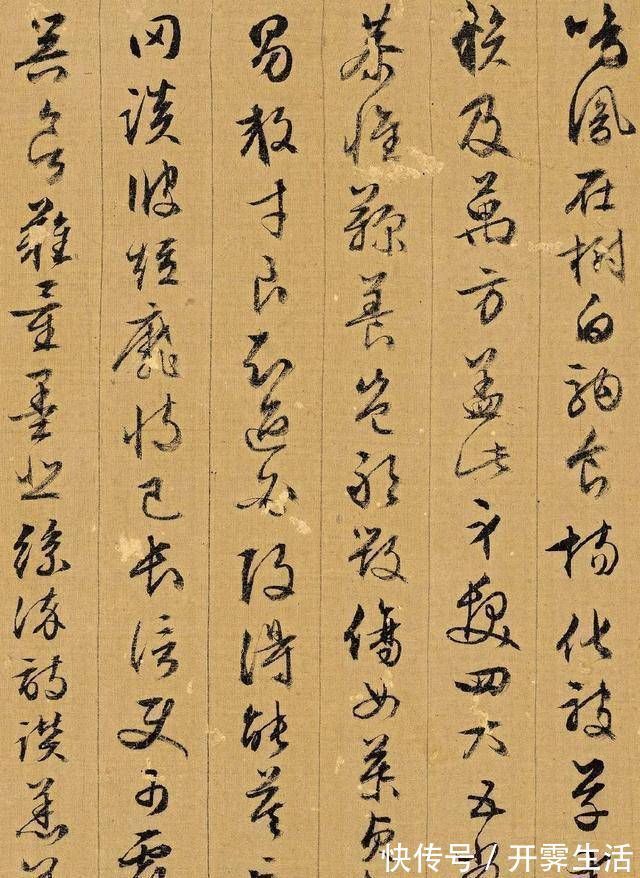 鳴鳳在樹白駒食場化被草
賴及萬方蓋此身髮四大五常
恭惟鞠養豈敢毀傷女慕貞
男效才良知過必改得能莫
罔談彼短靡恃己長信使可覆
器欲難量墨悲絲染詩讚羔
快传号 / 开霁生活